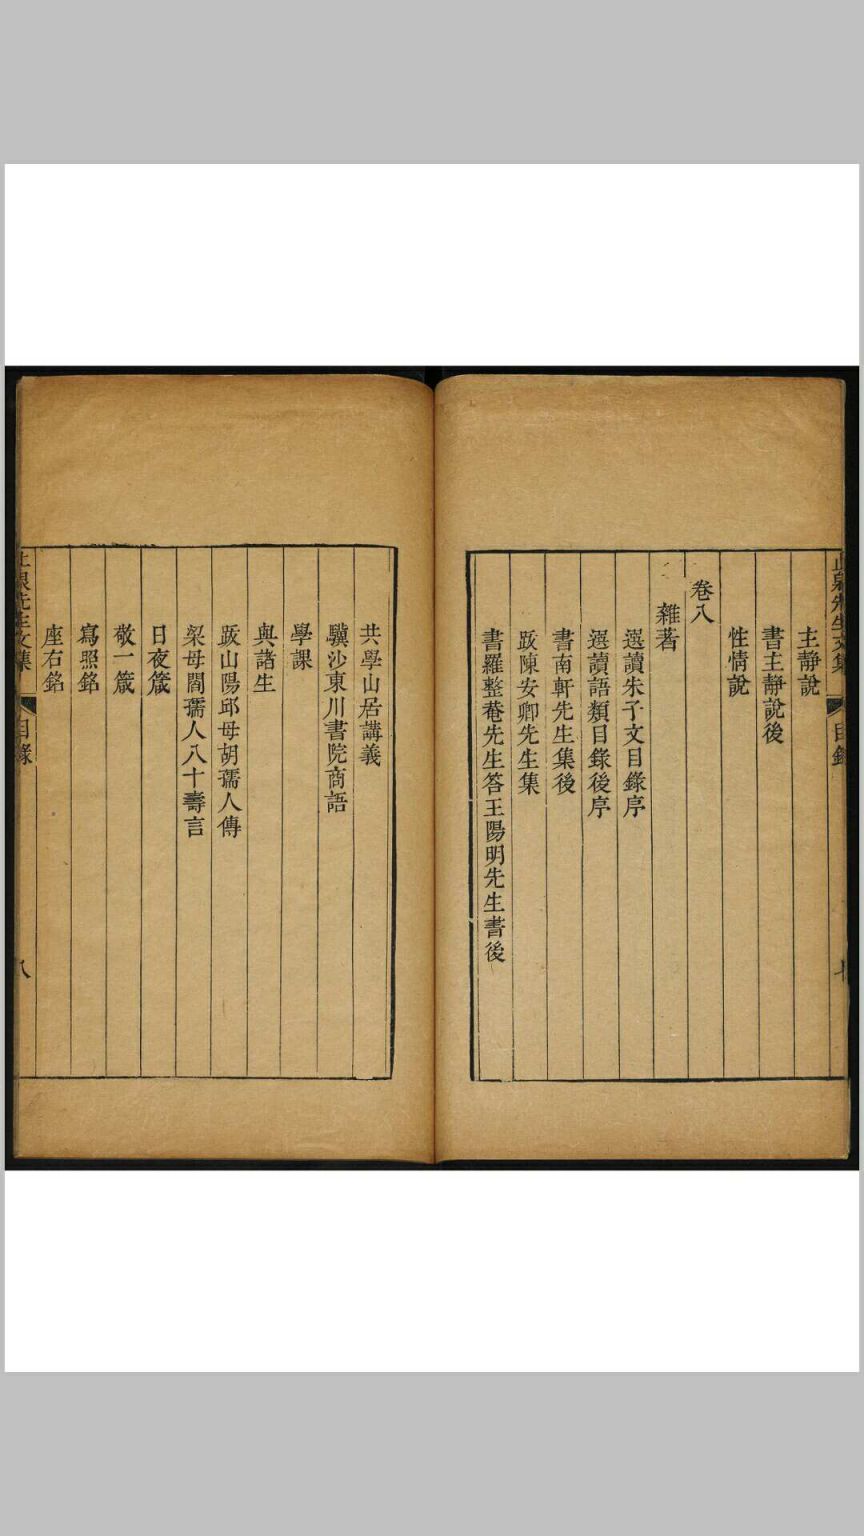 止泉先生文集
目錄
主靜說
書主靜說後
性情說
卷八
雜著
選讀朱子文目錄序
選讀語類目錄後序
書南軒先生集後
跋陳安卿先生集
書羅整菴先生答王陽明先生書後
共學山居講義
驥沙東川書院商語
學課
與諸生
跋山陽邱母胡孺人傳
梁母閻孺人八十壽言
日夜箴
敬一箴
寫照銘
座右銘
止泉先生文集
目錄
八